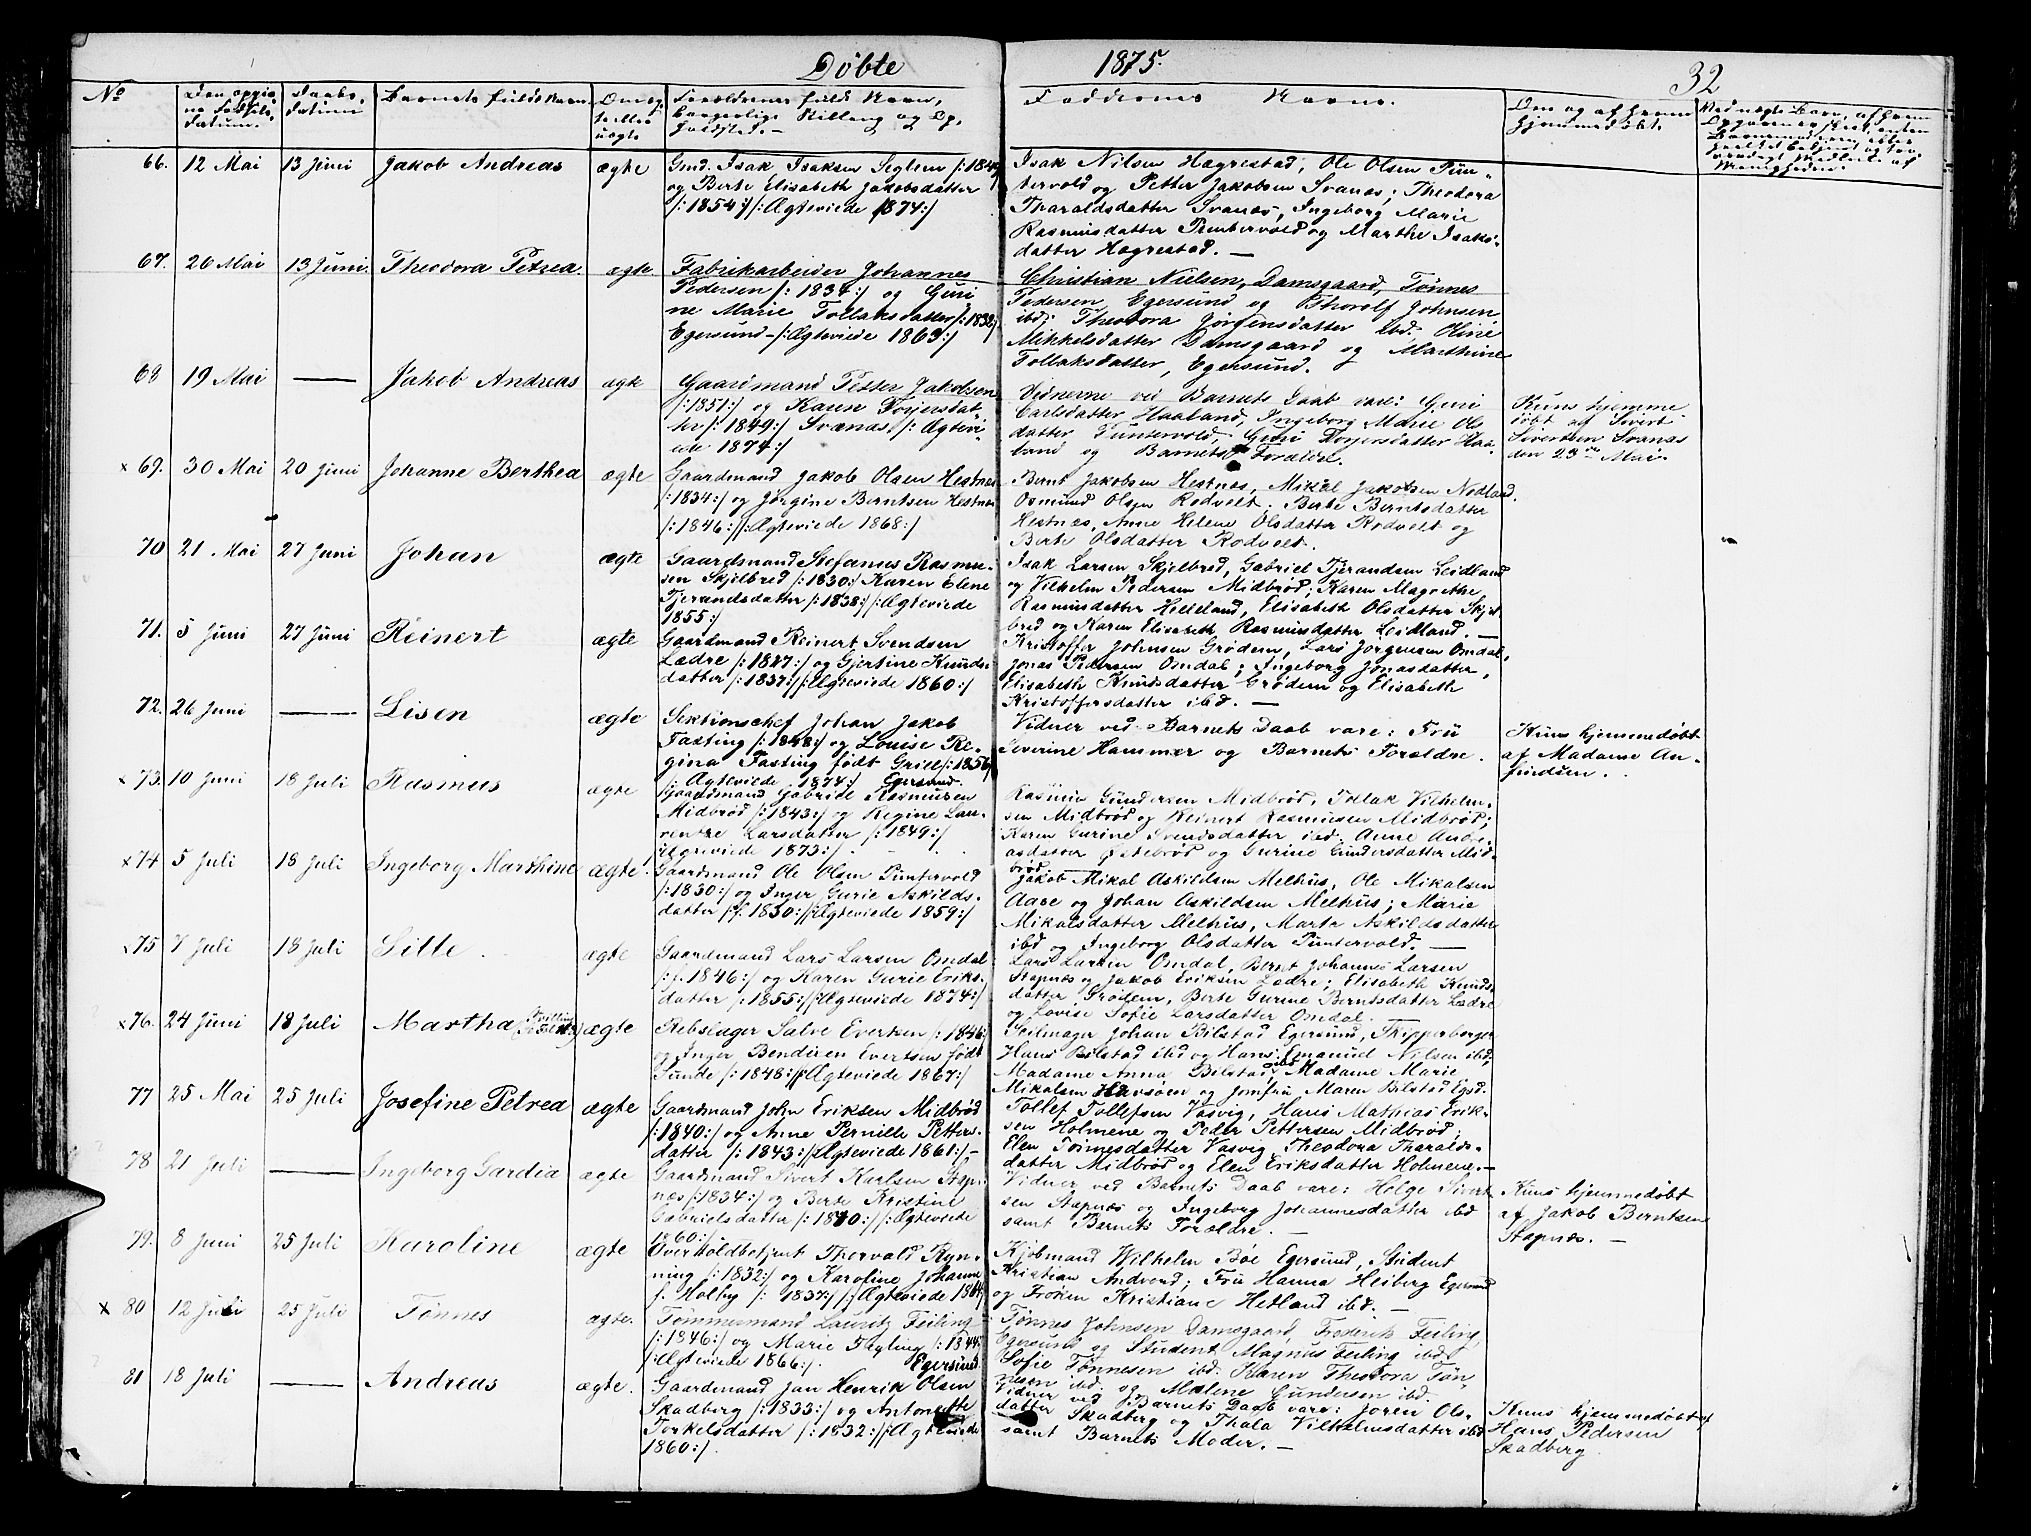 Døbte 1875. 32
No
Den opgiv-
ne Fødsels-
datum.
Daabs-
datum
Barnets fulde Navn
Om eg-
te eller
uegte
Forældrenes fulde Navn,
borgerlige Stilling og Op-
holdsted.
Faddernes Navne.
Om og af hvem
hjemmedøbt.
66. 12 Mai 13 Juni Jakob Andreas ægte
Gmd. Isak Isaksen Seglem /:1849:/
og Berte Elisabeth Jakobsdatter
/:1854:/ /:Ægteviede 1874:/
Isak Nilsen Hægrestad, Ole Olsen Pun-
tervold og Petter Jakobsen Svanes; Theodora
Tharaldsdatter Svanes, Ingeborg Marie
Rasmusdatter Puntervold og Marthe Isaks-
datter Hægrestad. —
67. 26 Mai 13 Juni Theodora Petrea ægte
Fabrikarbeider Johannes
Pedersen /:1834:/ og Guri-
ne Marie Tollaksdatter /:1832:/
Egersund- /:Ægteviede 1863:/
Christian Nielsen, Damsgaard, Tønnes
Pedersen, Egersund og Thorolf Johnsen
ibd; Theodora Jørgensdatter ibd. Hine
Mikkelsdatter Damsgaard og Marthine
Tollaksdatter, Egersund.
68 19 Mai — Jakob Andreas ægte
Gaardmand Petter Jakobsen
/:1851:/ og Karen Torjersdat-
ter /:1849:/ Svanes. /:Ægtevi-
ede 1874:/
Vidnerne ved Barnets Daab vare: Guri
Carlsdatter Haaland, Ingeborg Marie Ols
datter Puntervold, Guri Torjersdatter Haa-
land og Barnets Forældre.
Kuns hjemme
døbt af Sivert
Sivertsen Svanes
den 23de Mai.
x 69. 30 Mai 20 Juni Johanne Berthea ægte
Gaardmand Jakob Olsen Hestnes
/:1834:/ og Jørgine Berntsen Hestnes
/:1846:/ /:Ægteviede 1868:/
Bernt Jakobsen Hestnes, Mikal Jakobsen Nodland.
Osmund Olsen Rodvelt. Berte Berntsdatter
Hestnes, Anne Helene Olsdatter Rodvelt og
Berte Olsdatter Rodvelt.
70 21 Mai 27 Juni Johan ægte
Gaardmand Stefanus Rasmu-
sen Skjelbred /:1830:/ Karen Elene
Tjerandsdatter /:1838:/ /:Ægteviede
1855:/
Isak Larsen Skjelbred, Gabriel Tjerandsen Leidland
og Vilhelm Pedersen Midbrød; Karen Magrethe
Rasmusdatter Helleland, Elisabeth Olsdatter Skjel
bred og Karen Elisabeth Rasmusdatter Leidland. —
71. 5 Juni 27 Juni Reinert ægte
Gaardmand Reinert Svendsen
Lædre /:1827:/ og Gjertine Knuds-
datter /:1837:/ /:Ægteviede 1860:/
Kristoffer Johnsen Grødem, Lars Jørgensen Omdal,
Jonas Pedersen Omdal; Ingeborg Jonasdatter,
Elisabeth Knutsdatter Grødem og Elisabeth
Kristoffersdatter ibd. —
72. 26 Juni — Lisen ægte
Sektionschef Johan Jakob
Fasting /:1848:/ og Louise Re-
gina Fasting født Grill /:1856:/
/:Ægteviede 1874:/ Egersund.
Vidner ved Barnets Daab vare: Fru
Severine Hammer og Barnets Forældre.
Kuns hjemmedøbt
af Madame An-
findsen.
x 73. 10 Juni 18 Juli Rasmus ægte
Gaardmand Gabriel Rasmusen
Midbrød /:1843:/ og Regine Lau-
rentze Larsdatter /:1849:/
Ægteviede 1873:/
Rasmus Gundersen Midbrød, Tollak Vilhelm-
sen Midbrød og Reinert Rasmusen Midbrød;
Karen Gurine Svendsdatter ibd. Anne Andre-
asdatter Østebrød og Gurine Gundersdatter Mid-
brød.
x 74 5 Juli 18 Juli Ingeborg Marthine ægte
Gaardmand Ole Olsen Puntervold
/:1830:/ og Inger Gurie Askilds-
datter /:f. 1830:/ /:Ægteviede 1859:/
Jakob Mikal Askildsen Melhus, Ole Mikalsen
Aare og Johan Askildsen Melhus; Marie
Mikalsdatter Melhus, Marta Askildsdatter
ibd og Ingeborg Olsdatter Puntervold. —
x 75 7 Juli 18 Juli Sille ægte
Gaardmand Lars Larsen Omdal
/:f. 1846:/ og Karen Gurie Eriks-
datter /:1855:/ /:Ægteviede 1874:/
Lars Larsen Omdal, Bernt Johannes Larsen
Stapnes og Jakob Eriksen Lædre; Elisabeth Knuds-
datter Grødem, Berte Gurine Berntsdatter Lædre
og Lovise Sofie Larsdatter Omdal.
x 76. 24 Juni 18 Juli Martha ægte
Rebslager Salve Evertsen /:1846:/
og Inger Bendiren Evertsen født
Sunde /:1848:/ /:Ægteviede 1867:/
Seilmager Johan Bilstad Egersund, Skipperborger
Hans Bilstad ibd og Hans Emanuel Nilsen ibd,
Madame Anna Bilstad ibd Madame Marie
Mikalsen Havsøen og Jomfru Maren Bilstad Egsd.
77 25 Mai 25 Juli Josefine Petrea ægte
Gaardmand John Eriksen Midbrød
/:1840:/ og Anne Pernille Petters-
datter /:1843:/ /:Ægteviede 1861:/ -
Tollef Tollefsen Vasvig, Hans Mathias Erik-
sen Holmene og Peder Pettersen Midbrød;
Elen Tønnesdatter Vasvig, Theodora Tharalds-
datter Midbrød og Elen Eriksdatter Holmene. —
78 21 Juli — Ingeborg Gardia ægte
Gaardmand Sivert Karlsen Stap-
nes /:1834:/ og Berte Kristine
Gabrielsdatter /:1840:/ /:Ægteviede
1860:/
Vidner ved Barnets Daab vare: Helge Sivert
sen Stapnes og Ingeborg Johannesdatter ibd
samt Barnets Forældre. —
Kuns hjemmedøbt
af Jakob Berntsen
Stapnes. —
79. 8 Juni 25 Juli Karoline ægte
Overtoldbetjent Thorvald Ryn-
ning /:1832:/ og Karoline Johanne
f. Holby /:1837:/ /:Ægteviede 1864:/
Kjøbmand Wilhelm Bøe Egersund, Student
Kristian Andvord; Fru Hanna Heiberg Egersund
og Frøken Kristiane Hetland ibd. —
x 80 12 Juli 25 Juli Tønnes ægte.
Tømmermand Lauritz Feiling
/:1846:/ og Marie Feyling /:1844:/
/:Ægteviede 1866:/. Egersund
Tønnes Johnsen Damsgaard, Frederik Feiling,
Egersund og Student Magnus Feiling ibd.
Sofie Tønnesen ibd. Karen Theodora Tøn-
nesen ibd. og Malene Gundersen ibd.
81 18 Juli — Andreas ægte.
Gaardmand Jan Henrik Olsen
Skadberg /:1833:/ og Antonette
Torkelsdatter /:1832:/ /:Ægteviede
1860:/.
Vidner ved Barnets Daab vare: Joren Ols-
datter Skadberg og Thala Vilhelmsdatter ibd
samt Barnets Moder. —
Kuns hjemmedøbt af
Hans Pedersen
Skadberg.